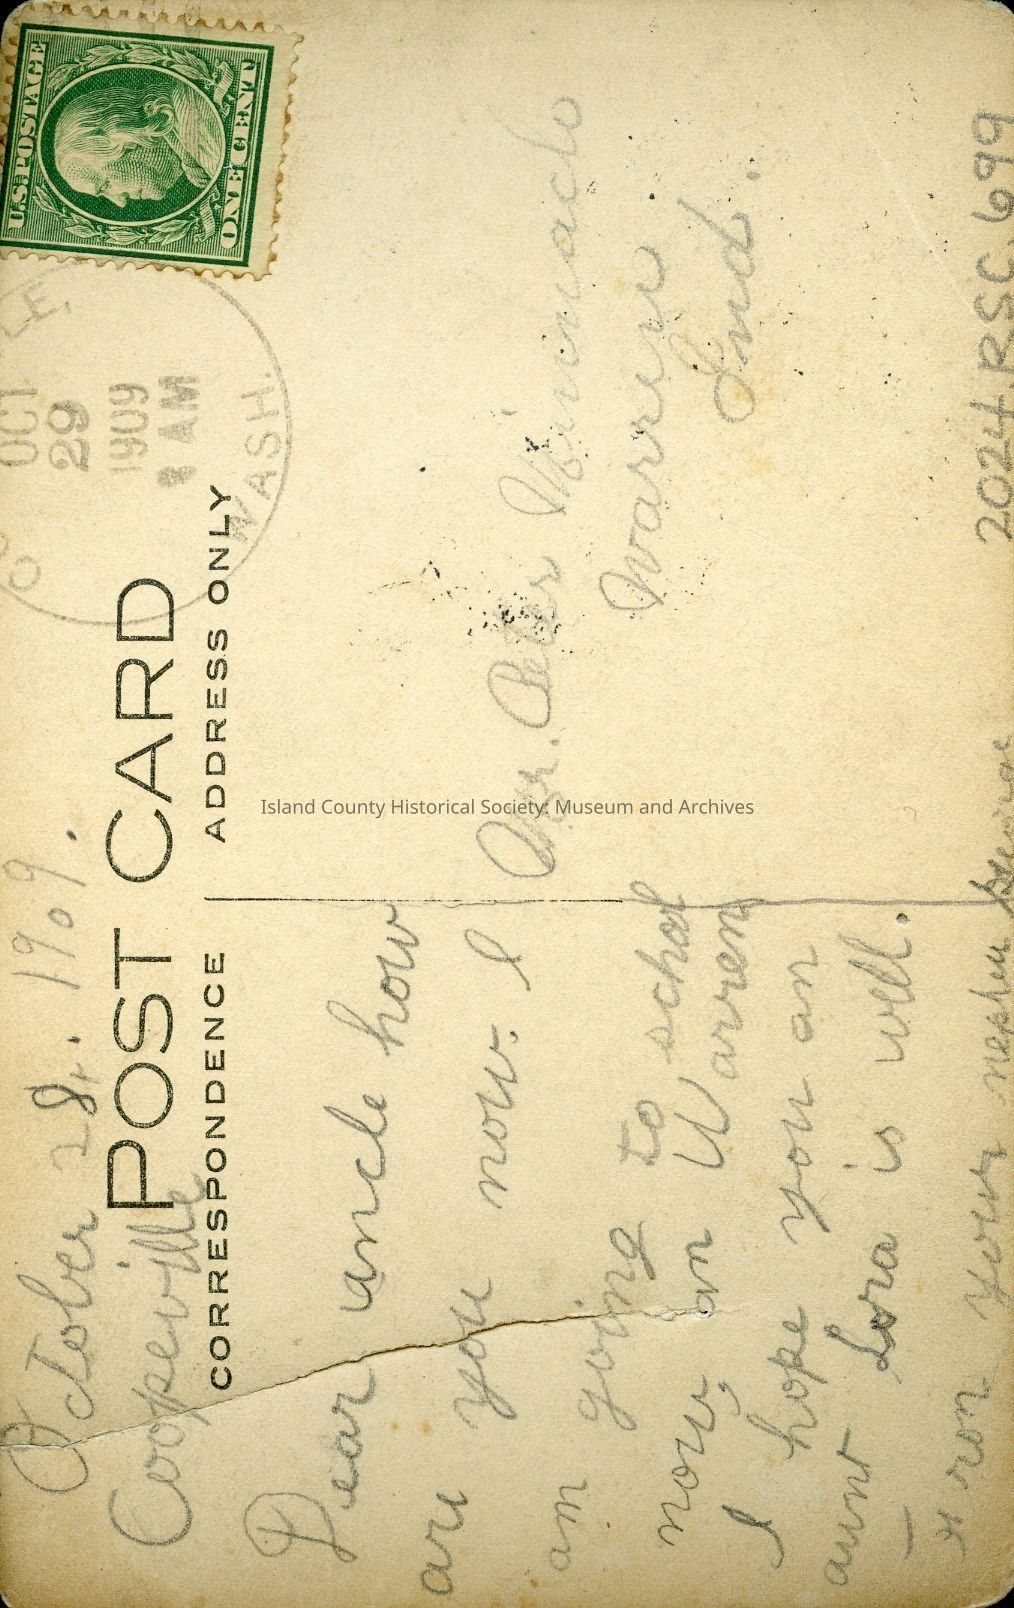 October 28. 1909.
Coopeville
POST CARD
CORRESPONDENCE
ADDRESS ONLY
Dear uncle how
are you now. I
am going to school
now, on Warren
I hope you an
aunt Lora is well.
From your nephew George
Mr. Peter
Warren
Ind.
U.S. POSTAGE
ONE CENT
LE,
OCT
29
1909
AM
WASH
2024.RSC.699
Island County Historical Society: Museum and Archives